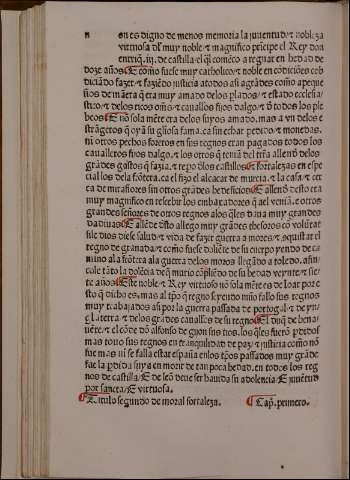 n On es digno de menos memoria la juuentud ⁊ nobleza
virtuosa dl muy noble ⁊ magnifico pricipe el Rey don
enrriq̃ .iij. de castilla el ql comẽço a regnar en hedad de
doze años ¶ E como fuese muy catholico ⁊ noble en cõdiciões cob
diciãdo fazer ⁊ faziẽdo justicia atodos asi agrãdes como apeque
ños de manera q̃ era muy amado delos plados ⁊ estado eclesia
stico ⁊ delos ricos oms ⁊ cauallos fijos dalgo ⁊ õ todos los ple
beos ¶ E nõ sola mẽte era delos suyos amado. mas a vn delos e
strãgeros q̃ oyã su gliosa fama. ca sin echar pedido ⁊ monedas.
ni otros pechos foreros en sus regnos eran pagados todos los
caualleros fijos dalgo ⁊ los otros q̃ teniã del trra allend delos
grandes gastos q̃ fazia ⁊ repo dlos castillos ¶ E fortalezas en espe
cial los dela frõtera. ca el fizo el alcacar de murcia. ⁊ la casa ⁊ cer
ca de miraflores sin otros grãdes hedeficios ¶ E allend desto era
muy magnifico en rescebir los embaxadores q̃ ael veniã. e otros
grandes señores de otros regnos alos qles daua muy grandes
dadiuas ¶ E allede dsto allego muy grandes thesoros cõ volũtat
si le dios diese salud ⁊ vida de fazer guerra a moros ⁊ aquistar el
regno de granada ⁊ como fuese doliẽte de su cuerpo yendo de ca
mino ala frõtera ala guerra delos moros llegãdo a toledo. afin
cole tãto la dolẽcia deq̃ murio cõplieno de su hedad veynte ⁊ sie
te años ¶ Este noble ⁊ Rey virtuoso nõ sola mẽte es de loar por e
sto q̃ dicho es. mas al tpo q̃ regno syendo niño fallo sus regnos
muy trabajados asi por la guerra passada de portogal ⁊ de yn
glaterra ⁊ delos grãdes caualllos de su regno ¶ El duq̃ de bena
uẽte. ⁊ el cõde dõ alfonso de gijon sus tios. los qles fuerõ pdidos
mas touo sus regnos en tranquilidad de paz ⁊ justicia como nõ
fue mas ni se falla estar españa enlos tpos passados muy grãde
fue la pdida suya en morir de tan poca hedad. en todos los reg
nos de castilla ¶ E de leõ deue ser hauida su adolencia ¶ E juuẽtud
por sancta ¶ E virtuosa.
¶ Titulo segundo de moral fortaleza. ¶ Cap. primero.